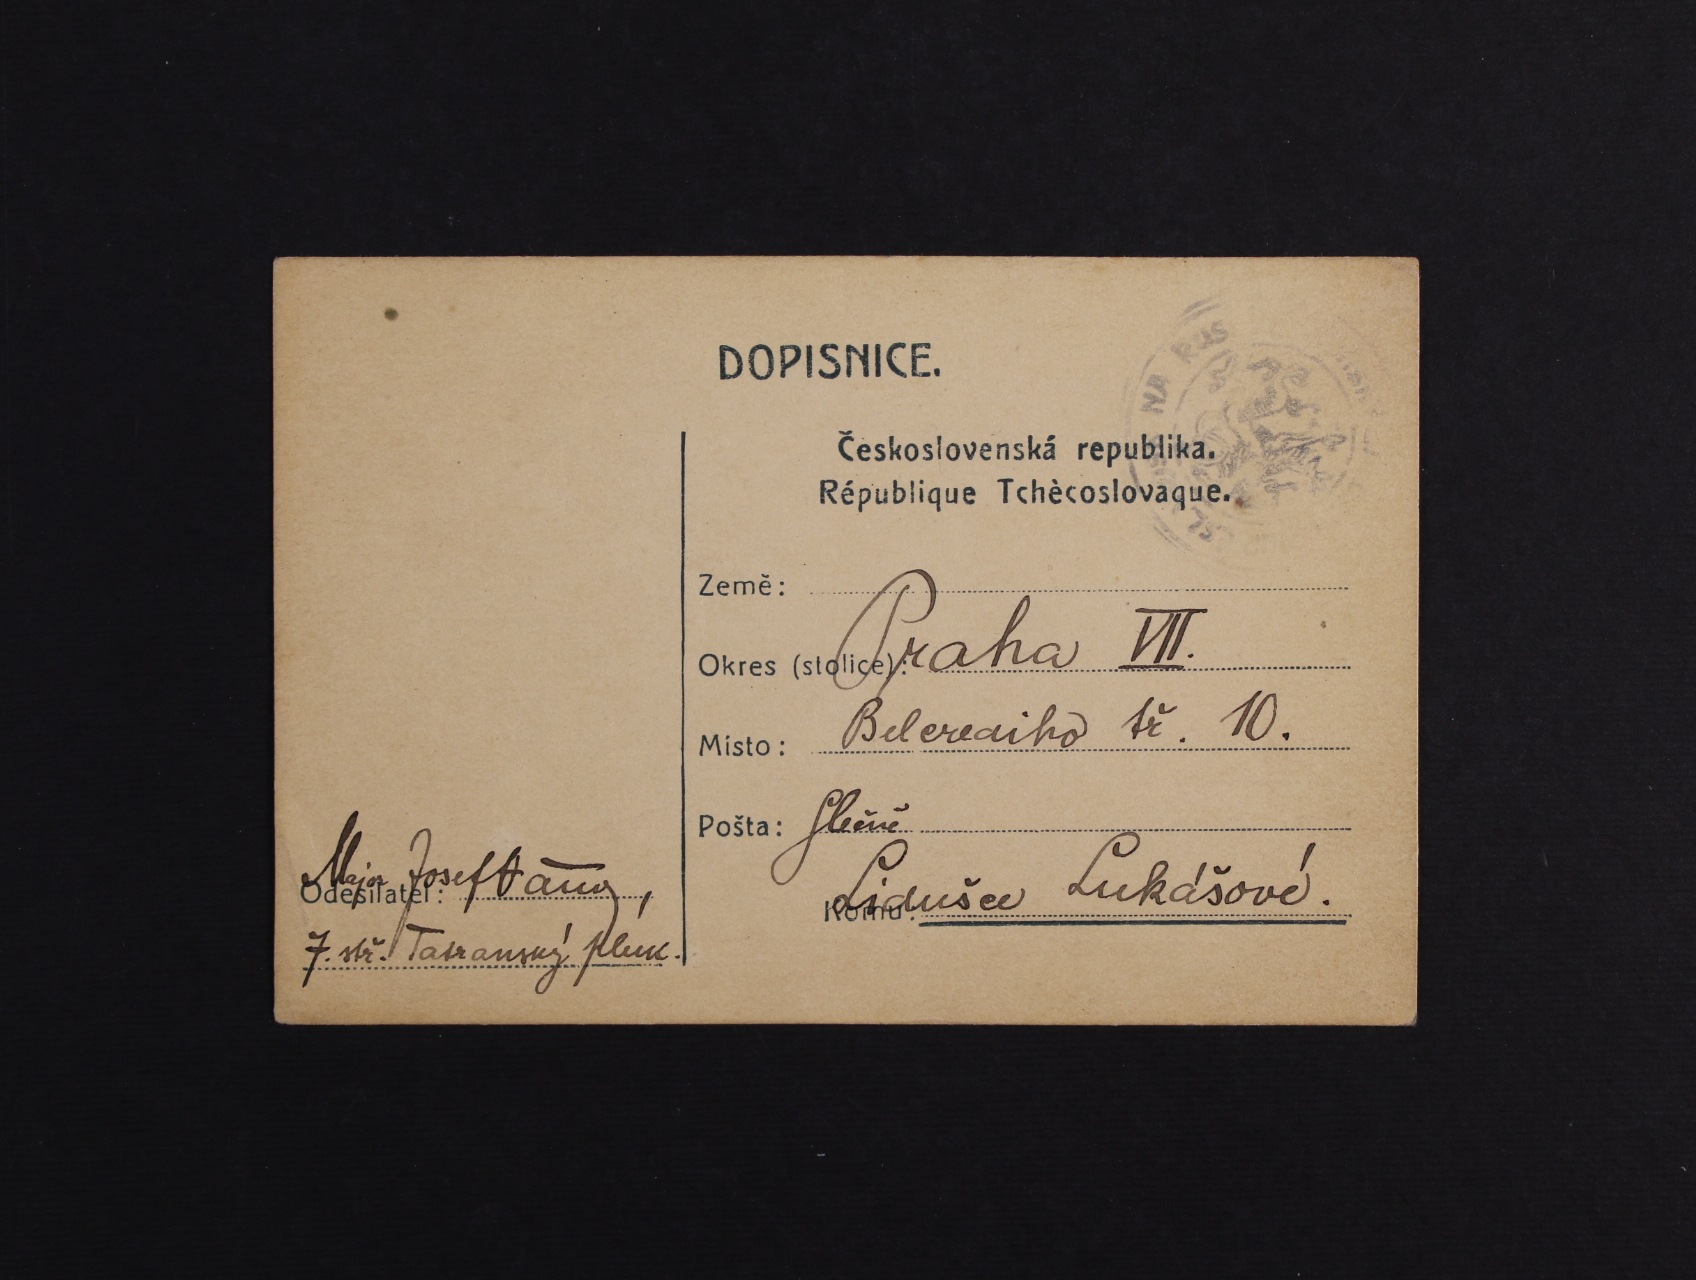 DOPISNICE.
Československá republika.
République Tchècoslovaque.
NA RUS
Země:
Okres (stolice): Praha VII.
Místo: Belcrediho tř. 10.
Pošta: Slečně
Komu: Lidušce Lukášové.
Odesílatel: Major Josef
7. stř. Tatranský pluk.